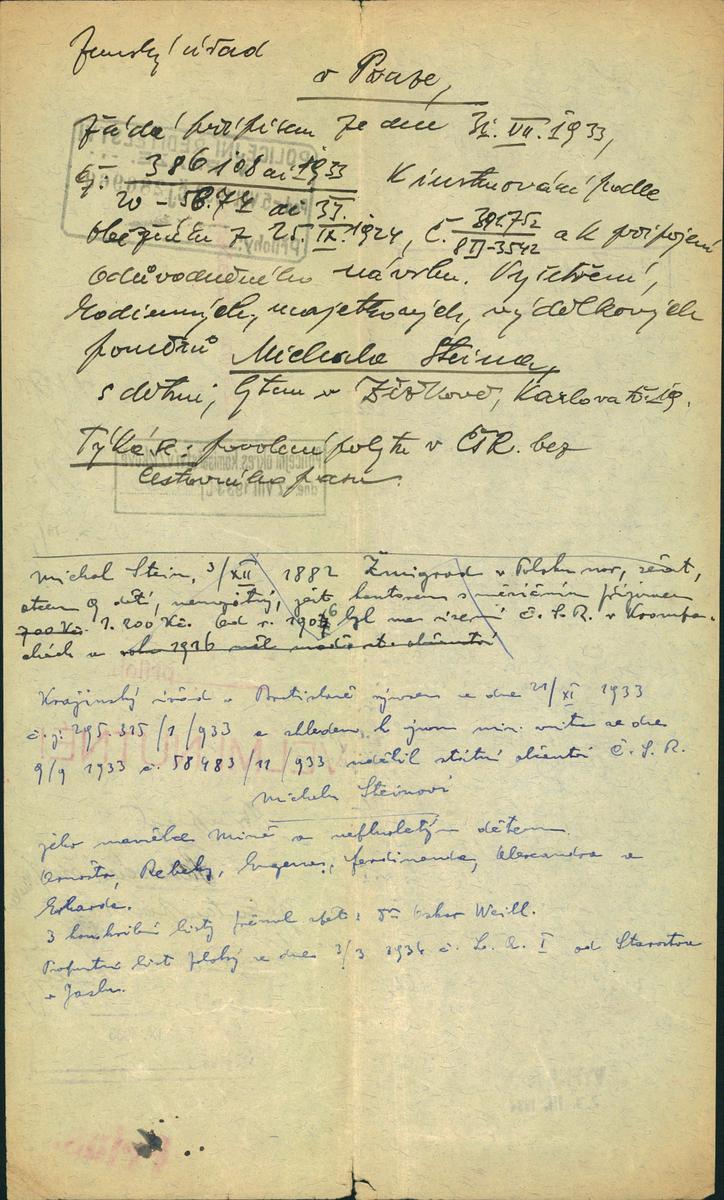 Zemský úřad
v Praze,
žádá přípisem ze dne 31. VII. 1933,
čj: 386108 ai 1933
20 - 5674 ai 33. K instruování podle
oběžníku z 25. IX. 1924, č. 391.752 / 8 II-3542 a k připojení
odůvodněného návrhu. Vyšetření,
rodinných, majetkových, výdělkových
poměrů Michala Steina,
s dětmi, bytem v Žižkově, Karlova tř. 19.
Týká se: povolení pobytu v ČSR. bez
cestovního pasu.
Michal Stein, 3/XII 1882 Žmigrod v Polsku nar., ženat,
otcem 9 dětí, nemajetný, jest kantorem s měsíčním příjmem
700 Kč. 1.200 Kč. Od r. 1906 byl na území Č.S.R. v Krompa-
chách a roku 1926
Krajinský úřad v Bratislavě výnosem ze dne 21/XI 1933
č.j. 295.315/1/933 a ohledem k výnosu min. vnitra ze dne
9/9 1933 č. 58483/11/933 udělil státní občanství Č.S.R.
Michalu Steinovi
jeho manželce Mině a nezletilým dětem
Arnošta, Rebeky, Eugena, Ferdinanda, Alexandra a
Erharda.
3 konskribční listy Dr. Oskar Weill.
list ze dne 3/3 1934 č. I od Starosty
v Jaslu.